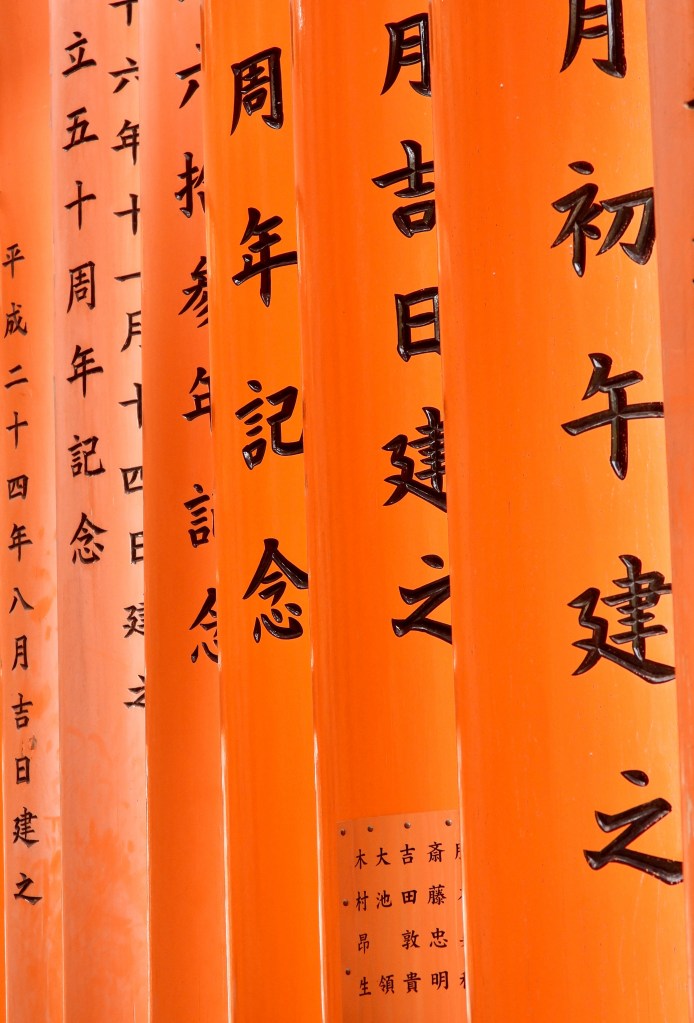 月初午建之
月吉日建之
斎藤忠明
吉田敦貴
大池領
木村昂生
周年記念
六拾参年記念
十六年十一月十四日建之
立五十周年記念
平成二十四年八月吉日建之